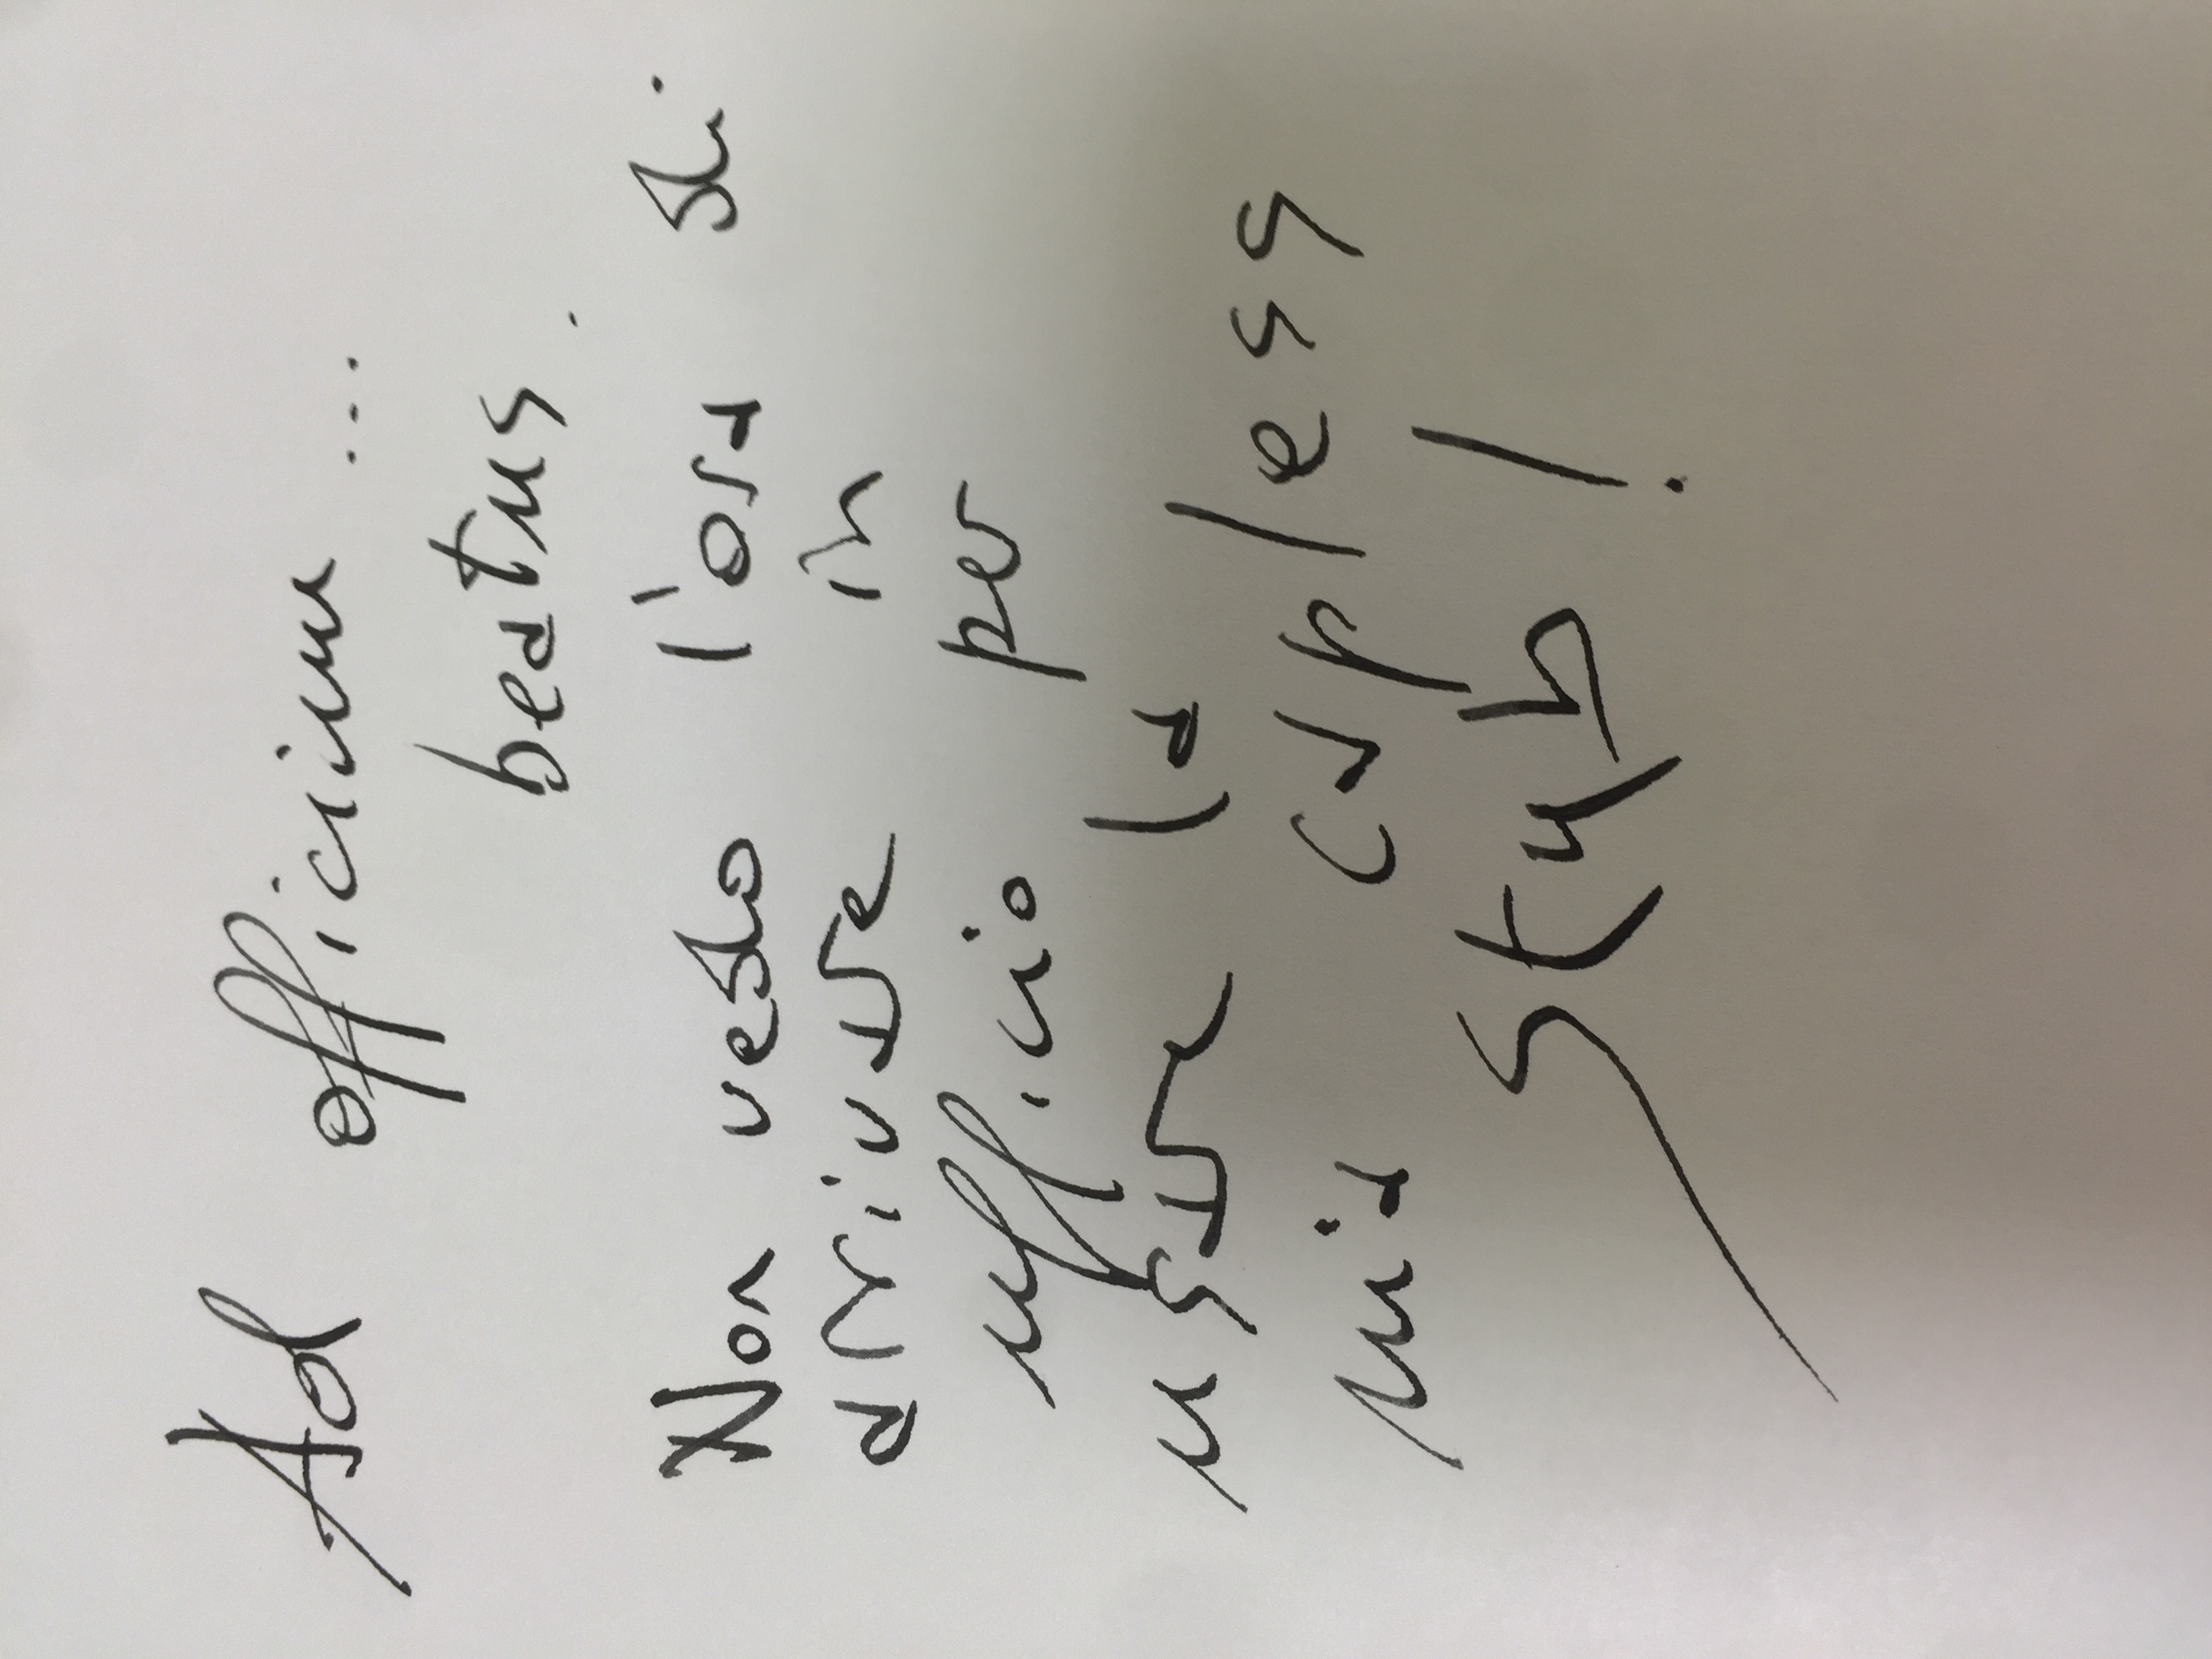 Ad officium ...
beatus.
Non vedo l'ora di
arrivare in
ufficio per
usare la
mia capless
stub!